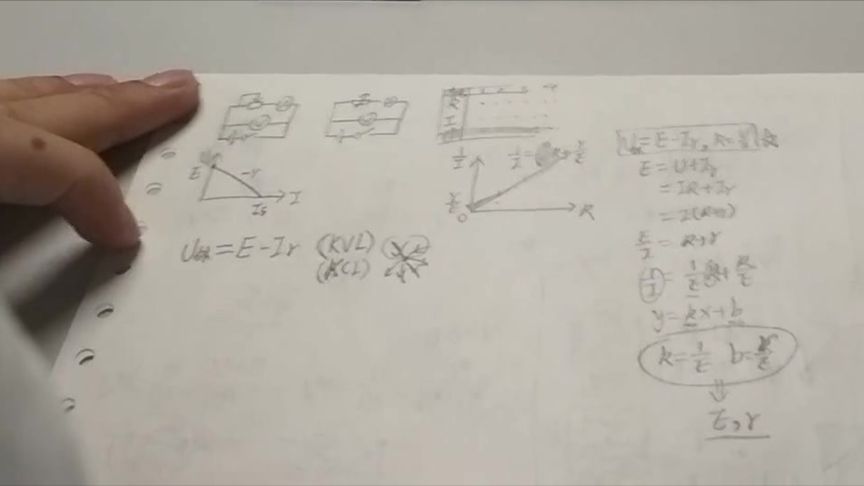 R
I
E
-r
I₀
I
U=E-Ir (KVL)
(KCL)
1/I
r/E
0
R
U=E-Ir, R=U/I
E=U+Ir
=IR+Ir
=I(R+r)
E/I=R+r
1/I=1/E R+r/E
y=kx+b
k=1/E b=r/E
⇓
E,r